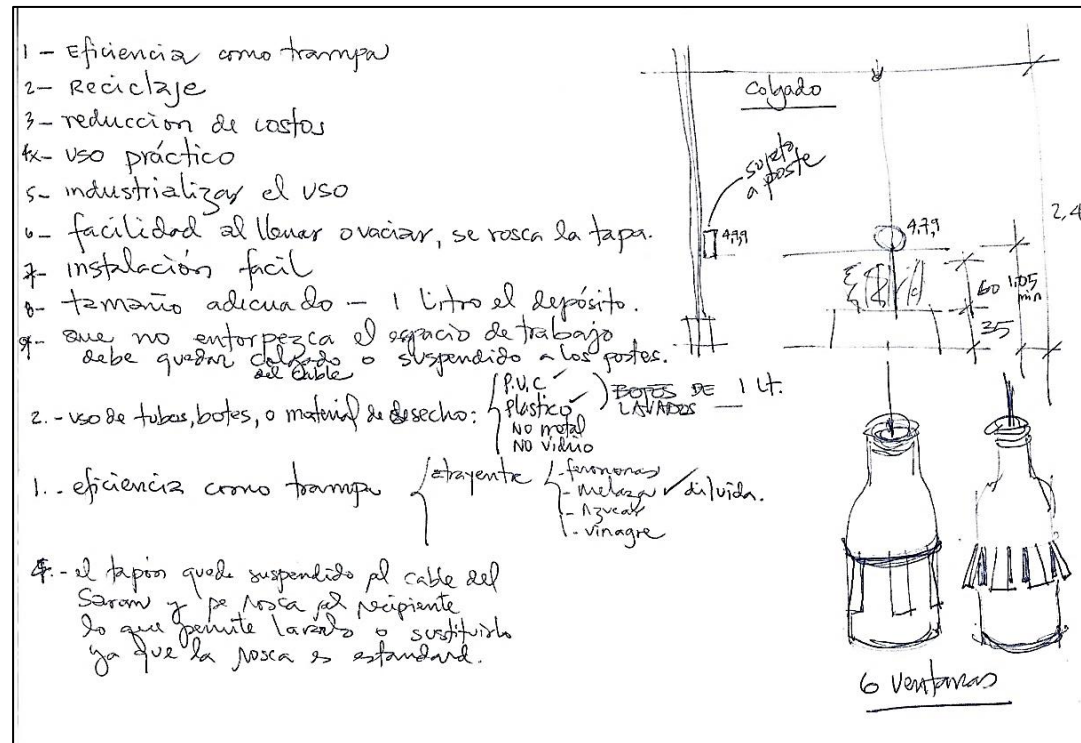 1 - Eficiencia como trampa
2- Reciclaje
3- reduccion de costos
4x- uso práctico
5- industrializar el uso
6- facilidad al llenar o vaciar, se rosca la tapa.
7- instalación facil
8- tamaño adecuado - 1 Litro el depósito.
9- que no entorpezca el espacio de trabajo
debe quedar colgado o suspendido a los postes.
del cable
2.- uso de tubos, botes, o material de desecho:
P.V.C ✓
Plástico ✓
NO metal
NO vidrio
BOTES DE 1 Lt.
LAVADOS
1.- eficiencia como trampa
atrayente
- feromonas
- melaza ✓ diluida.
- Azucar
- vinagre
4.- el tapón queda suspendido al cable del
Saran y se rosca al recipiente
lo que permite lavarlo o sustituirlo
ya que la rosca es estandard.
Colgado
sujeto
a poste
4,7,9
4,7,9
2,4
60
1.05
min
35
6 Ventanas